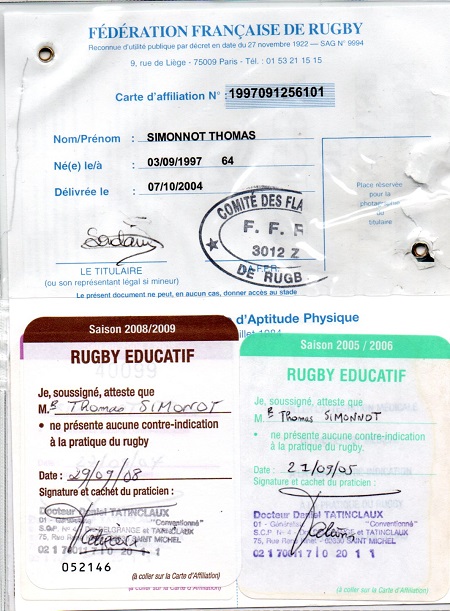 FÉDÉRATION FRANÇAISE DE RUGBY
Reconnue d'utilité publique par décret en date du 27 novembre 1922 — SAG N° 9994
9, rue de Liège - 75009 Paris - Tél. : 01 53 21 15 15
Carte d'affiliation N° : 1997091256101
Nom/Prénom : SIMONNOT THOMAS
Né(e) le/à : 03/09/1997 64
Délivrée le : 07/10/2004
Place réservée
pour la
du
titulaire
COMITÉ DES FLA
F. F. R
3012 Z
DE RUGB
LE TITULAIRE
(ou son représentant légal si mineur)
Le présent document ne peut, en aucun cas, donner accès au stade
d'Aptitude Physique
Saison 2008/2009
RUGBY EDUCATIF
Je, soussigné, atteste que
M. Thomas SIMONNOT
• ne présente aucune contre-indication
à la pratique du rugby
Date : 29/09/08
Signature et cachet du praticien :
Docteur Daniel TATINCLAUX
"Conventionné"
75, Rue SAINT MICHEL
052146
(à coller sur la Carte d'Affiliation)
Saison 2005 / 2006
RUGBY EDUCATIF
Je, soussigné, atteste que
M. Thomas SIMONNOT
• ne présente aucune contre-indication
à la pratique du rugby
Date : 21/09/05
Signature et cachet du praticien :
Docteur Daniel TATINCLAUX
"Conventionné"
SAINT MICHEL
(à coller sur la Carte d'Affiliation)